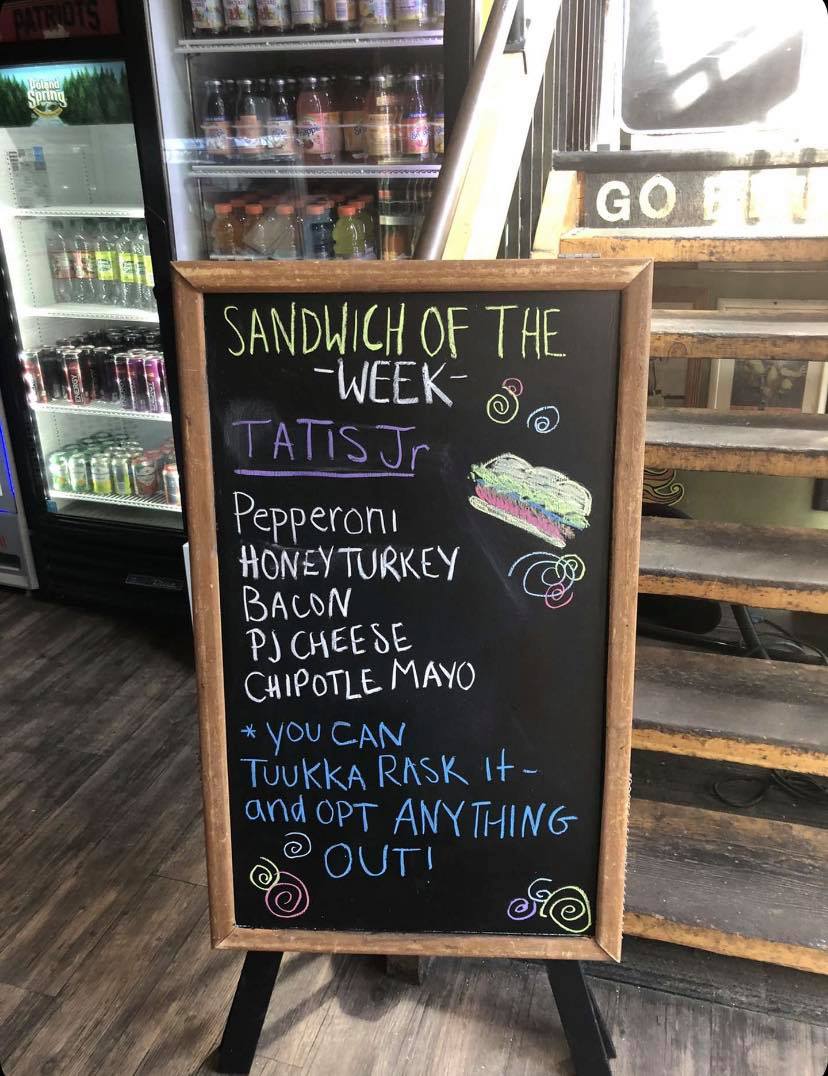 PATRIOTS
Poland
Spring
GO
SANDWICH OF THE
-WEEK-
TATIS Jr
Pepperoni
HONEY TURKEY
BACON
PJ CHEESE
CHIPOTLE MAYO
* YOU CAN
TUUKKA RASK it -
and OPT ANYTHING
OUT!